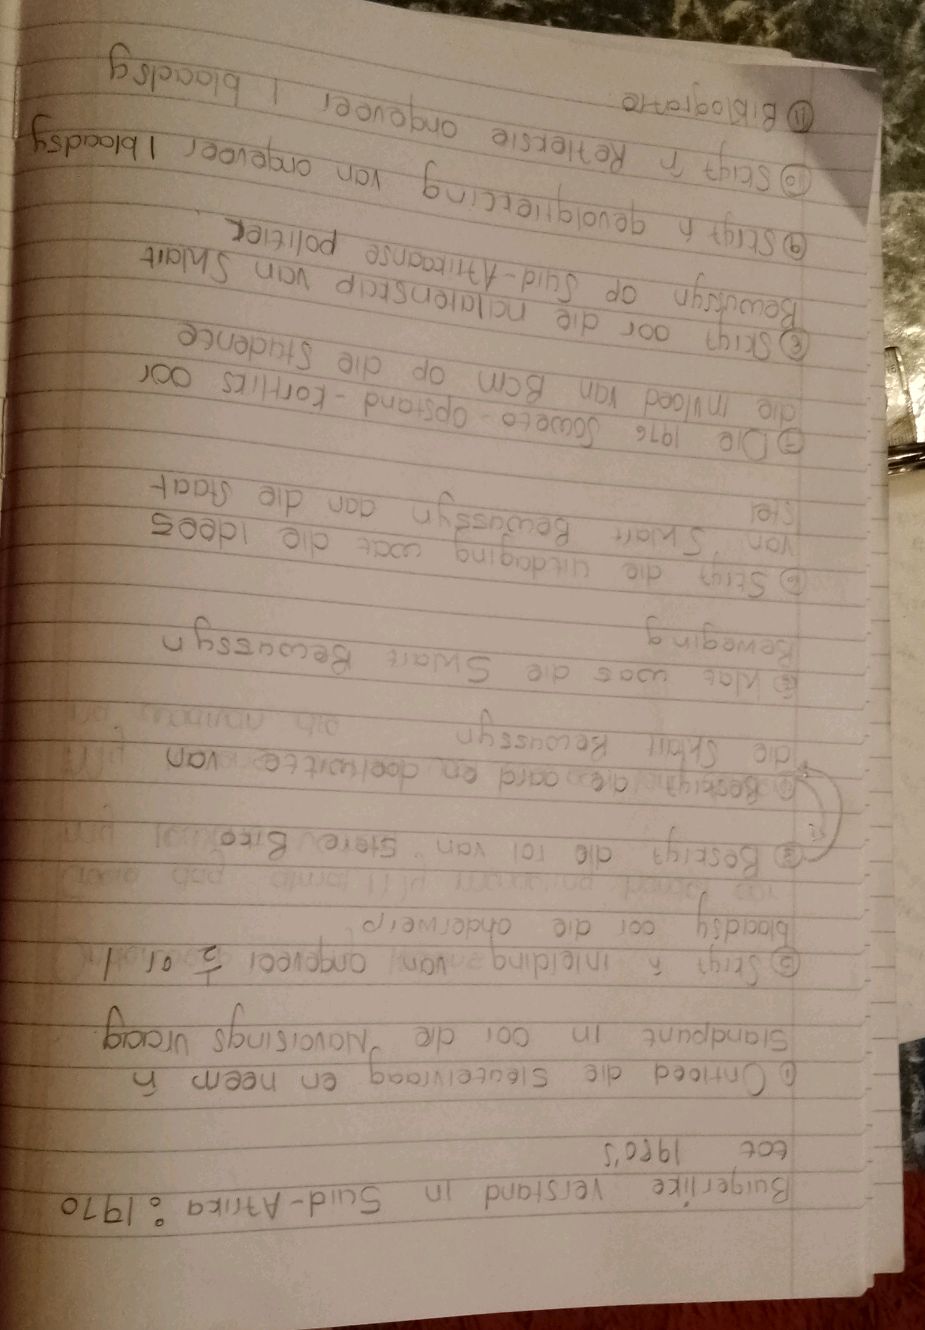 Burgerlike verstand in Suid-Afrika: 1970
tot 1980's
① Ontleed die sleutelvraag en neem 'n
standpunt in oor die Navorsings vraag.
② Skryf 'n inleiding van ongeveer ½ of 1
bladsy oor die onderwerp
③ Beskryf die rol van Steve Biko
④ Beskryf die aard en doelwitte van
die Swart Bewussyn
⑤ Wat was die Swart Bewussyn
Beweging
⑥ Skryf die uitdaging wat die idees
van Swart Bewussyn aan die staat
stel
⑦ Die 1976 Soweto-Opstand-kortliks oor
die invloed van BCM op die studente
⑧ Skryf oor die nalatenskap van Swart
Bewussyn op Suid-Afrikaanse politiek.
⑨ Skryf 'n gevolgtrekking van ongeveer 1 bladsy
⑩ Skryf 'n Refleksie ongeveer 1 bladsy
⑪ Bibliografie